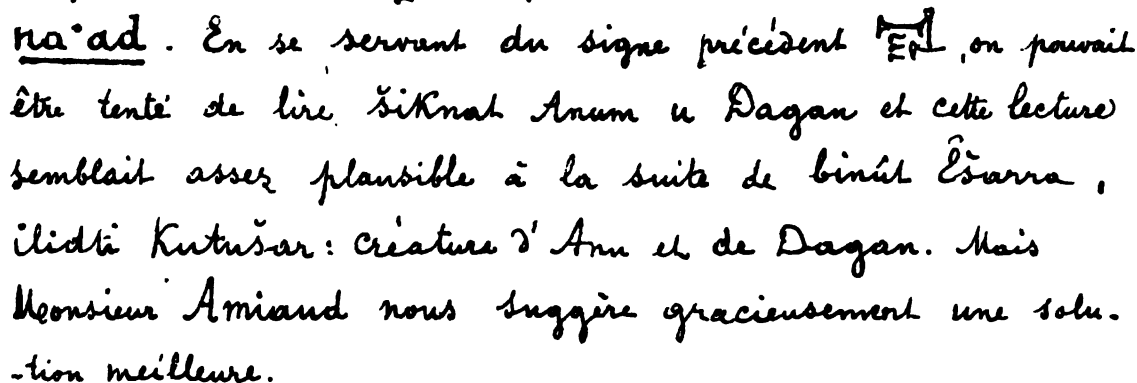 na'ad. En se servant du signe précédent , on pouvait
être tenté de lire šiknat Anum u Dagan et cette lecture
semblait assez plausible à la suite de binût Êšarra,
ilidti Kutušar: créature d'Anu et de Dagan. Mais
Monsieur Amiaud nous suggère gracieusement une solu-
-tion meilleure.